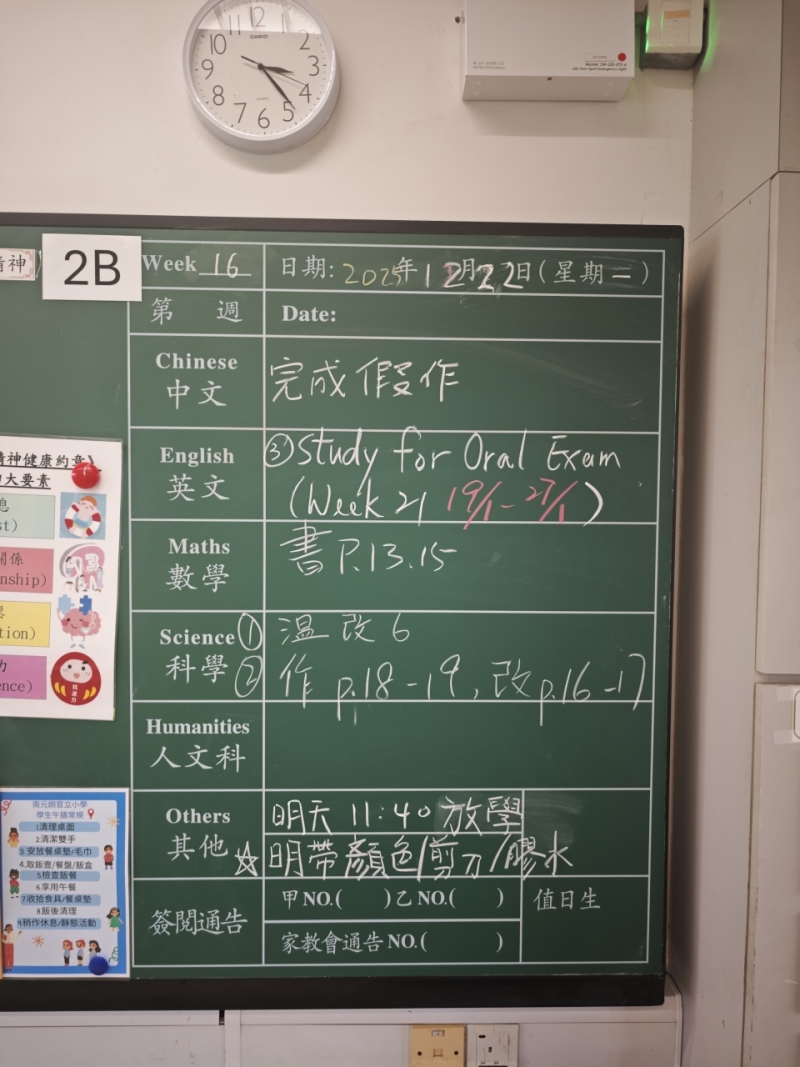 12
11
1
10
2
9
3
8
4
7
6
5
CASIO
QUARTZ
精神
2B
Week 16
日期: 2025年12月22日(星期一)
第 週
Date:
Chinese
中文
完成假作
English
英文
③ Study for Oral Exam
(Week 21 19/1 - 27/1)
Maths
數學
書 P.13.15
Science
科學
① 溫改6
② 作 p.18-19, 改 p.16-17
Humanities
人文科
Others
其他
明天 11:40 放學
☆明帶顏色/剪刀/膠水
簽閱通告
甲NO.( )乙NO.( )
家教會通告NO.( )
值日生
精神健康約章》
大要素
息
st)
關係
nship)
tion)
力
ence)
南元朗官立小學
學生午膳常規
1清理桌面
2.清潔雙手
3.安放餐桌墊/毛巾
4.取飯壺/餐盤/飯盒
5檢查飯餐
6.享用午餐
7收拾食具/餐桌墊
8.飯後清理
9.稍作休息/靜態活動